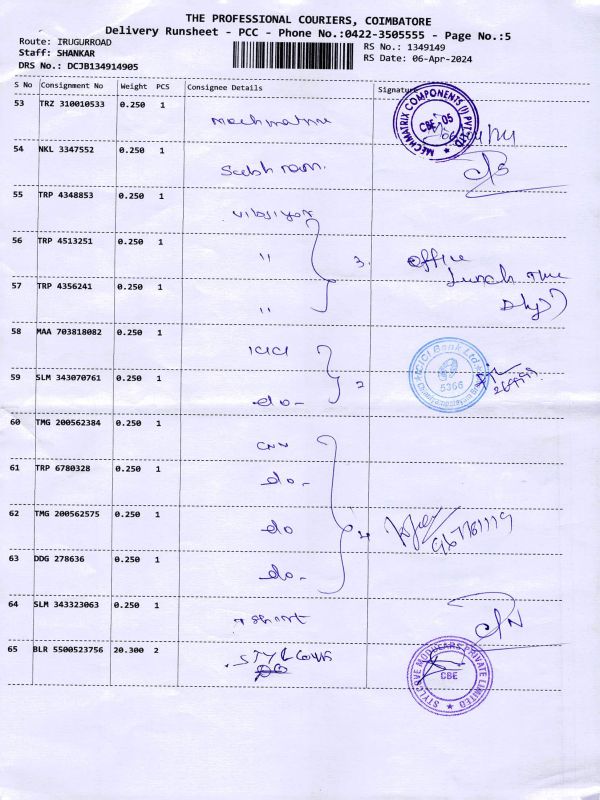 THE PROFESSIONAL COURIERS, COIMBATORE
Delivery Runsheet - PCC - Phone No.:0422-3505555 - Page No.:5
Route: IRUGURROAD
RS No.: 1349149
Staff: SHANKAR
RS Date: 06-Apr-2024
DRS No.: DCJB134914905
S No Consignment No Weight PCS Consignee Details Signature
53 TRZ 310010533 0.250 1
MECHMATRIX COMPONENTS (I) PVT. LTD. CBE - 05
54 NKL 3347552 0.250 1
55 TRP 4348853 0.250 1
56 TRP 4513251 0.250 1 " 3. office
57 TRP 4356241 0.250 1 " Lunch time
58 MAA 703818082 0.250 1 ICICI
ICICI Bank Ltd. 5366
59 SLM 343070761 0.250 1 do - 2
60 TMG 200562384 0.250 1 CNN
61 TRP 6780328 0.250 1 do -
62 TMG 200562575 0.250 1 do 4
63 DDG 278636 0.250 1 do -
64 SLM 343323063 0.250 1
65 BLR 5500523756 20.300 2
STYLCOVE MODULARS PRIVATE LIMITED CBE